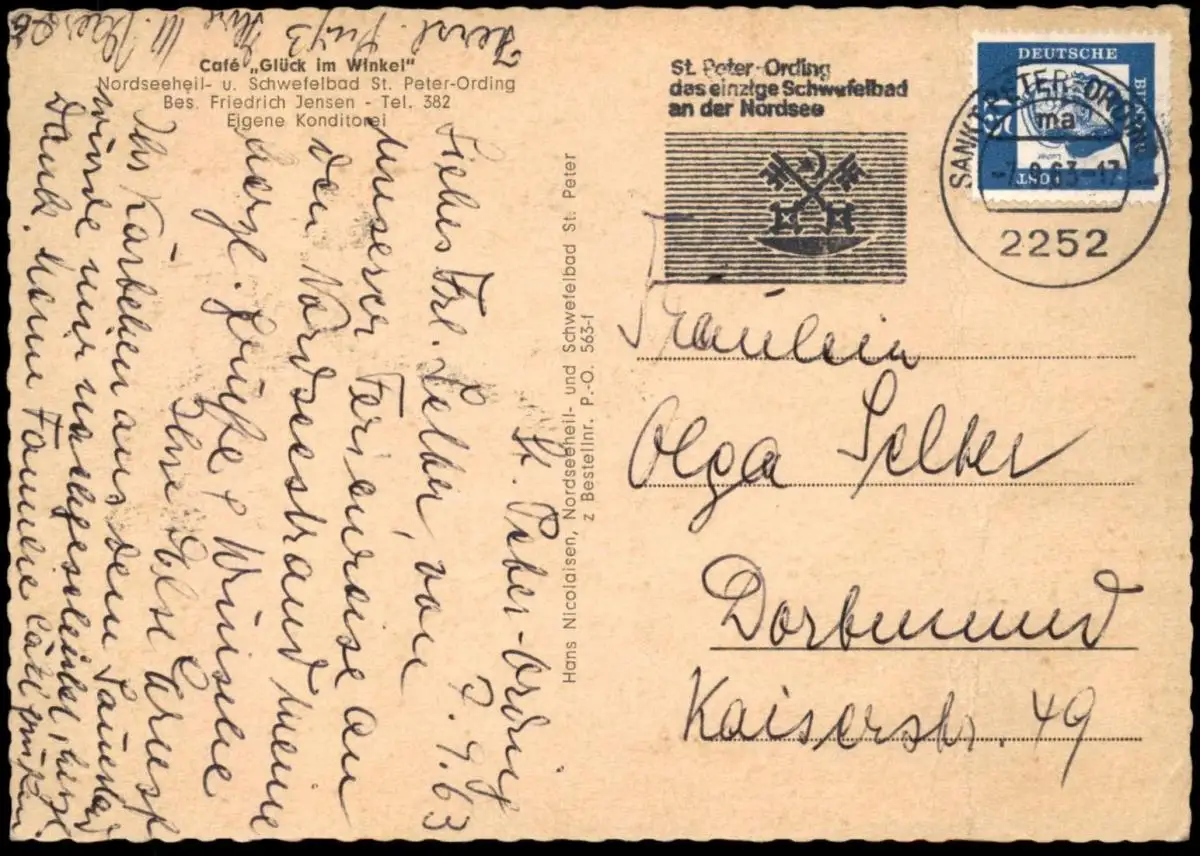 Café „Glück im Winkel"
Nordseeheil- u. Schwefelbad St. Peter-Ording
Bes. Friedrich Jensen - Tel. 382
Eigene Konditorei
St. Peter-Ording
das einzige Schwefelbad
an der Nordsee
DEUTSCHE
BUNDES
POST
Luther
SANKT PETER-ORDING
ma
-7.9.63-17
2252
Hans Nicolaisen, Nordseeheil- und Schwefelbad St. Peter
z Bestellnr. P.-O. 563-f
St. Peter-Ording
7.9.63
Liebes Frl. Selter, von
unserer Ferienreise an
den Nordseestrand meine
herzl. Grüße & Wünsche
Ihre Else
Ihr Kärtchen aus dem Sauerland
wurde mir nachgeschickt, herzl.
Dank. Meine Tante läßt grüßen
Herzl. Gruß
Ihre
Fräulein
Olga Selter
Dortmund
Kaiserstr. 49